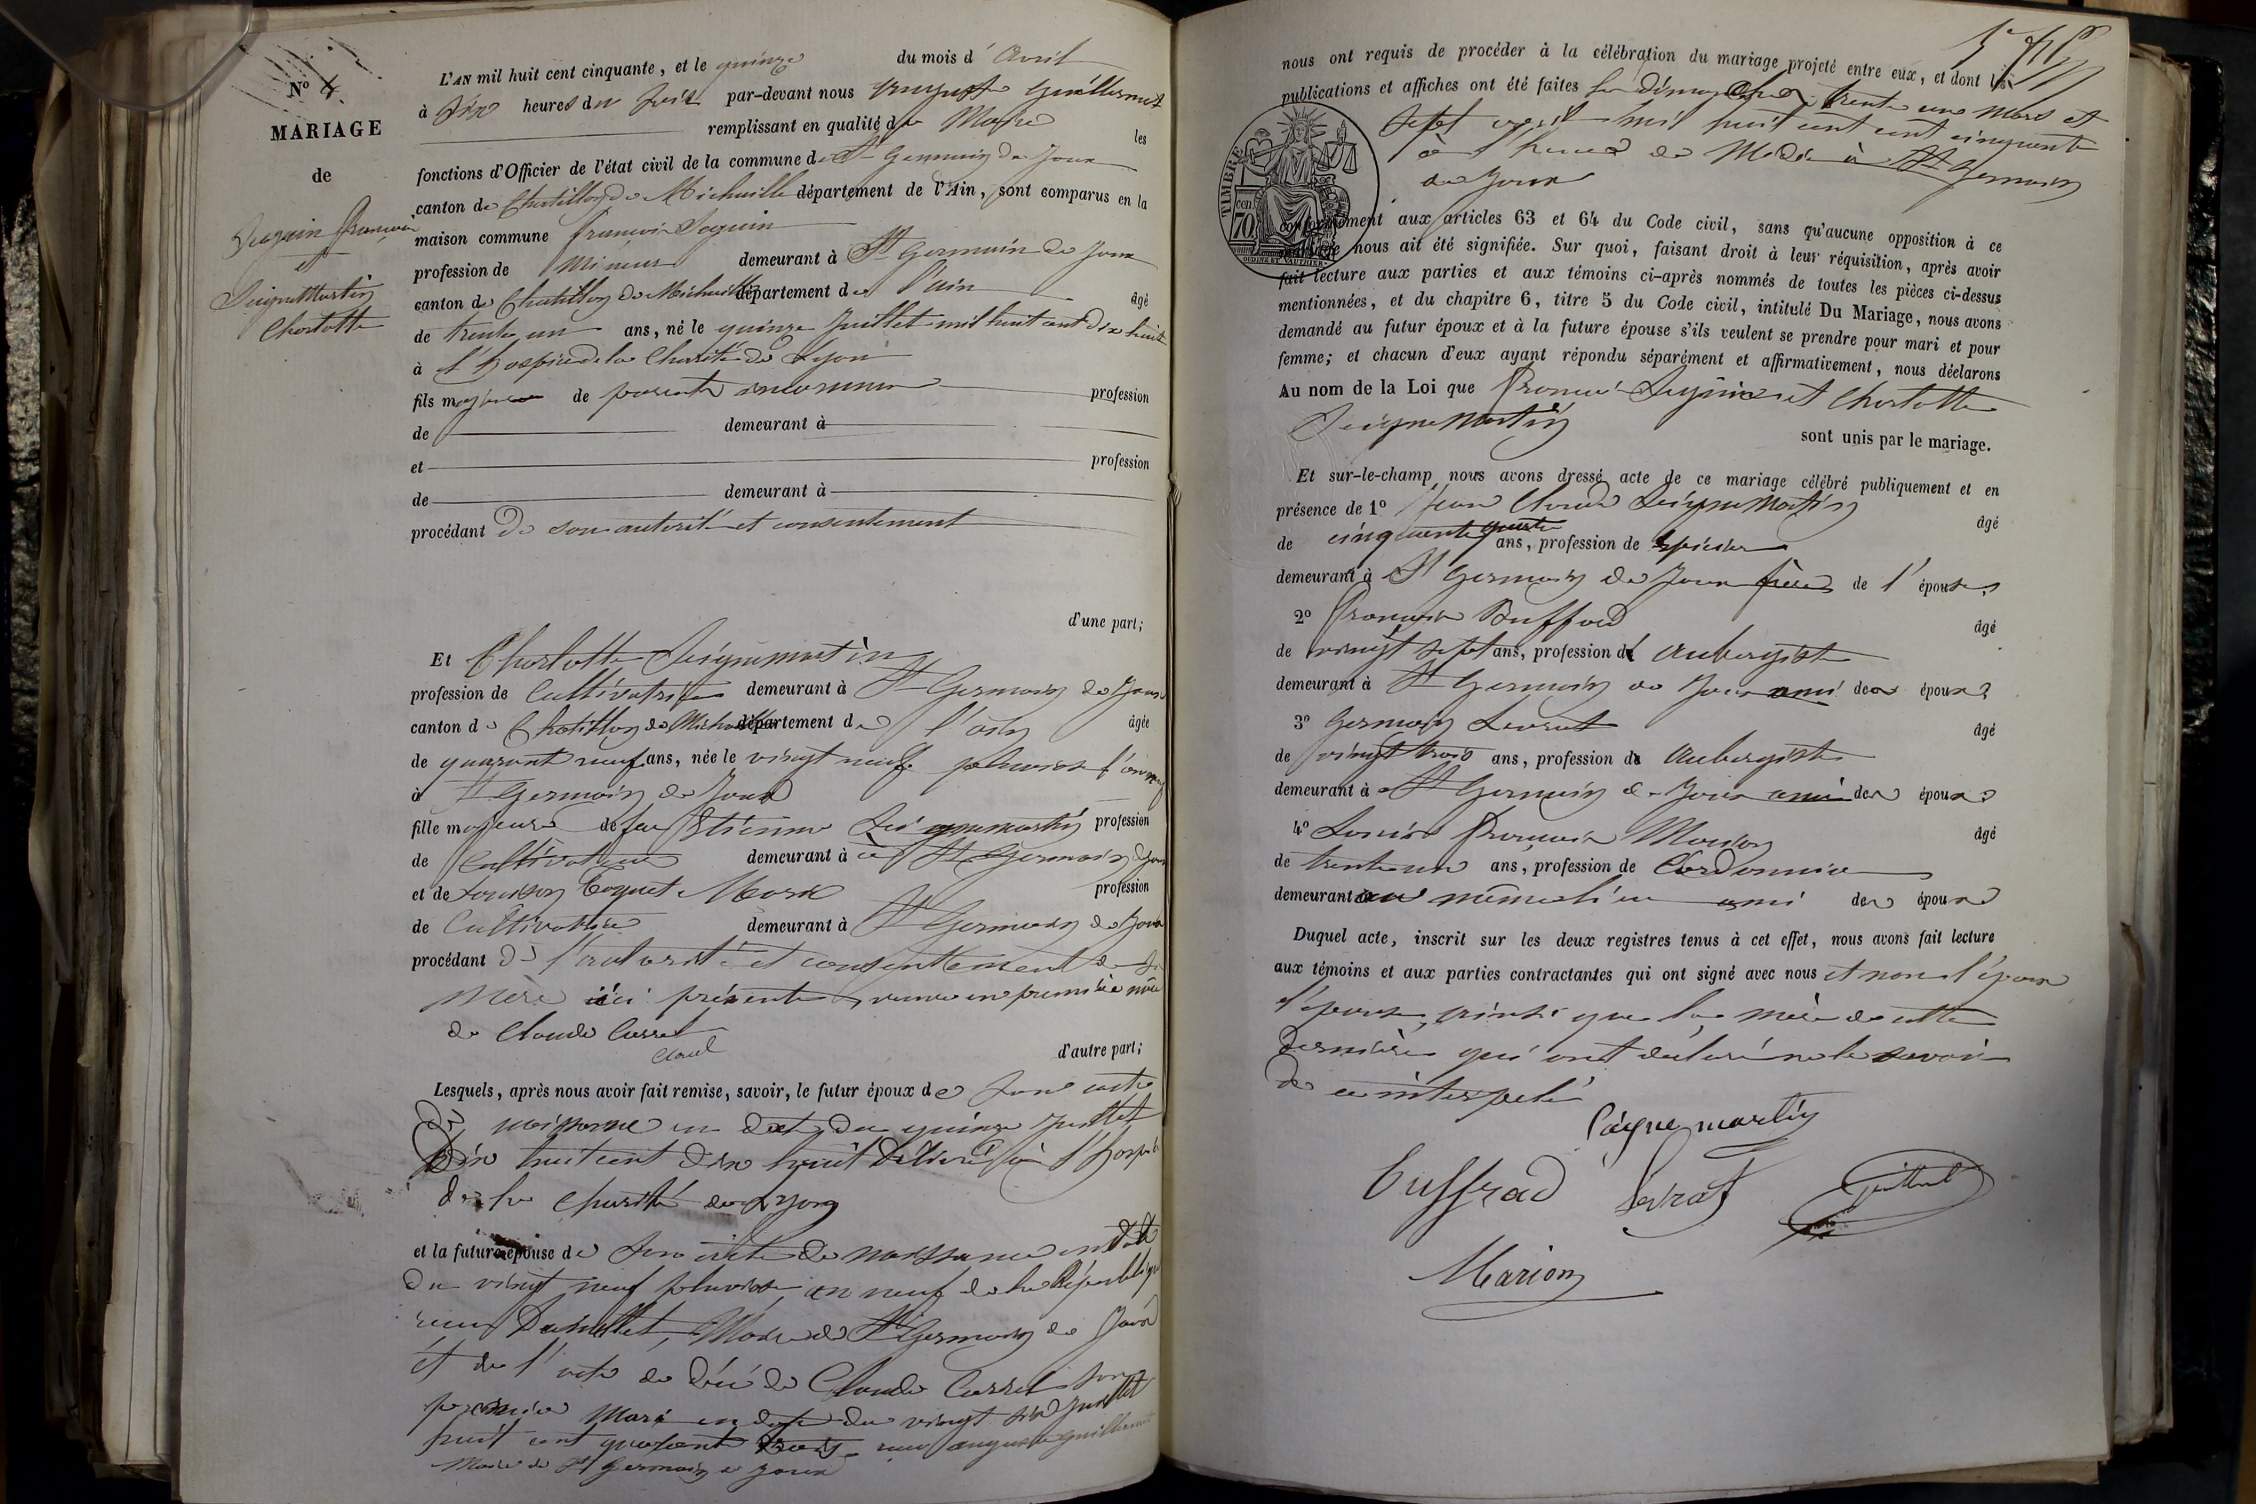 N° 4
MARIAGE
de
Seguin François
et
Seignemartin
Charlotte
L'AN mil huit cent cinquante, et le quinze du mois d'Avril
à six heures du soir par-devant nous Auguste Guillermet
remplissant en qualité de Maire les
fonctions d'Officier de l'état civil de la commune de St Germain de Joux
canton de Chatillon de Michaille département de l'Ain, sont comparus en la
maison commune François Seguin
profession de Mineur demeurant à St Germain de Joux
canton de Chatillon de Michaille département de l'ain âgé
de trente un ans, né le quinze Juillet mil huit cent dix huit
à l'hospice de la Charité de Lyon
fils majeur de parents inconnus profession
de demeurant à
et profession
de demeurant à
procédant de son autorité et consentement
d'une part;
Et Charlotte Seignemartin
profession de Cultivatrice demeurant à St Germain de Joux
canton de Chatillon de Michaille département de l'ain âgée
de quarant neuf ans, née le vingt neuf pluviose l'an neuf
à St Germain de Joux
fille majeure de feu Etienne Seignemartin profession
de Cultivateur demeurant à St Germain de Joux
et de Louison Coquet Marn profession
de Cultivatrice demeurant à St Germain de Joux
procédant de l'autorité et consentement de sa
mère ici présente, veuve en première noce
de Claude Curral
d'autre part;
Lesquels, après nous avoir fait remise, savoir, le futur époux de son acte
de naissance en date du quinze Juillet
dix huit cent dix huit délivré à l'hospice
de la charité de Lyon
et la future épouse de son acte de naissance en date
du vingt neuf pluviose, an neuf de la République
reçu Maire de St Germain de Joux
et de l'acte de décé de Claude Curral son
premier mari en date du vingt six Juillet
huit cent quarant trois reçu auguste guillermet
Maire de St Germain de Joux
nous ont requis de procéder à la célébration du mariage projeté entre eux, et dont les
publications et affiches ont été faites les dimanches trente une mars et
sept avril mil huit cent cinquante
à l'heure de Midi à St Germain
de Joux
TIMBRE
cen. 70
conformément aux articles 63 et 64 du Code civil, sans qu'aucune opposition à ce
mariage nous ait été signifiée. Sur quoi, faisant droit à leur réquisition, après avoir
fait lecture aux parties et aux témoins ci-après nommés de toutes les pièces ci-dessus
mentionnées, et du chapitre 6, titre 5 du Code civil, intitulé Du Mariage, nous avons
demandé au futur époux et à la future épouse s'ils veulent se prendre pour mari et pour
femme; et chacun d'eux ayant répondu séparément et affirmativement, nous déclarons
Au nom de la Loi que François Seguin et Charlotte
Seignemartin
sont unis par le mariage.
Et sur-le-champ nous avons dressé acte de ce mariage célébré publiquement et en
présence de 1° Jean Claude Seignemartin âgé
de cinquante quatre ans, profession de Epicier
demeurant à St Germain de Joux frère de l'épouse
2° François Buffard âgé
de vingt sept ans, profession d'Aubergiste
demeurant à St Germain de Joux ami des époux
3° Germain Levrat âgé
de vingt trois ans, profession de Aubergiste
demeurant à St Germain de Joux ami des époux
4° Louis François Marion âgé
de trente un ans, profession de Cordonnier
demeurant au même lieu ami des époux
Duquel acte, inscrit sur les deux registres tenus à cet effet, nous avons fait lecture
aux témoins et aux parties contractantes qui ont signé avec nous et non l'époux
l'épouse, ainsi que la mère de cette
dernière qui ont déclaré ne le savoir
de ce interpelé
Seigne martin
Buffard Levrat
Marion